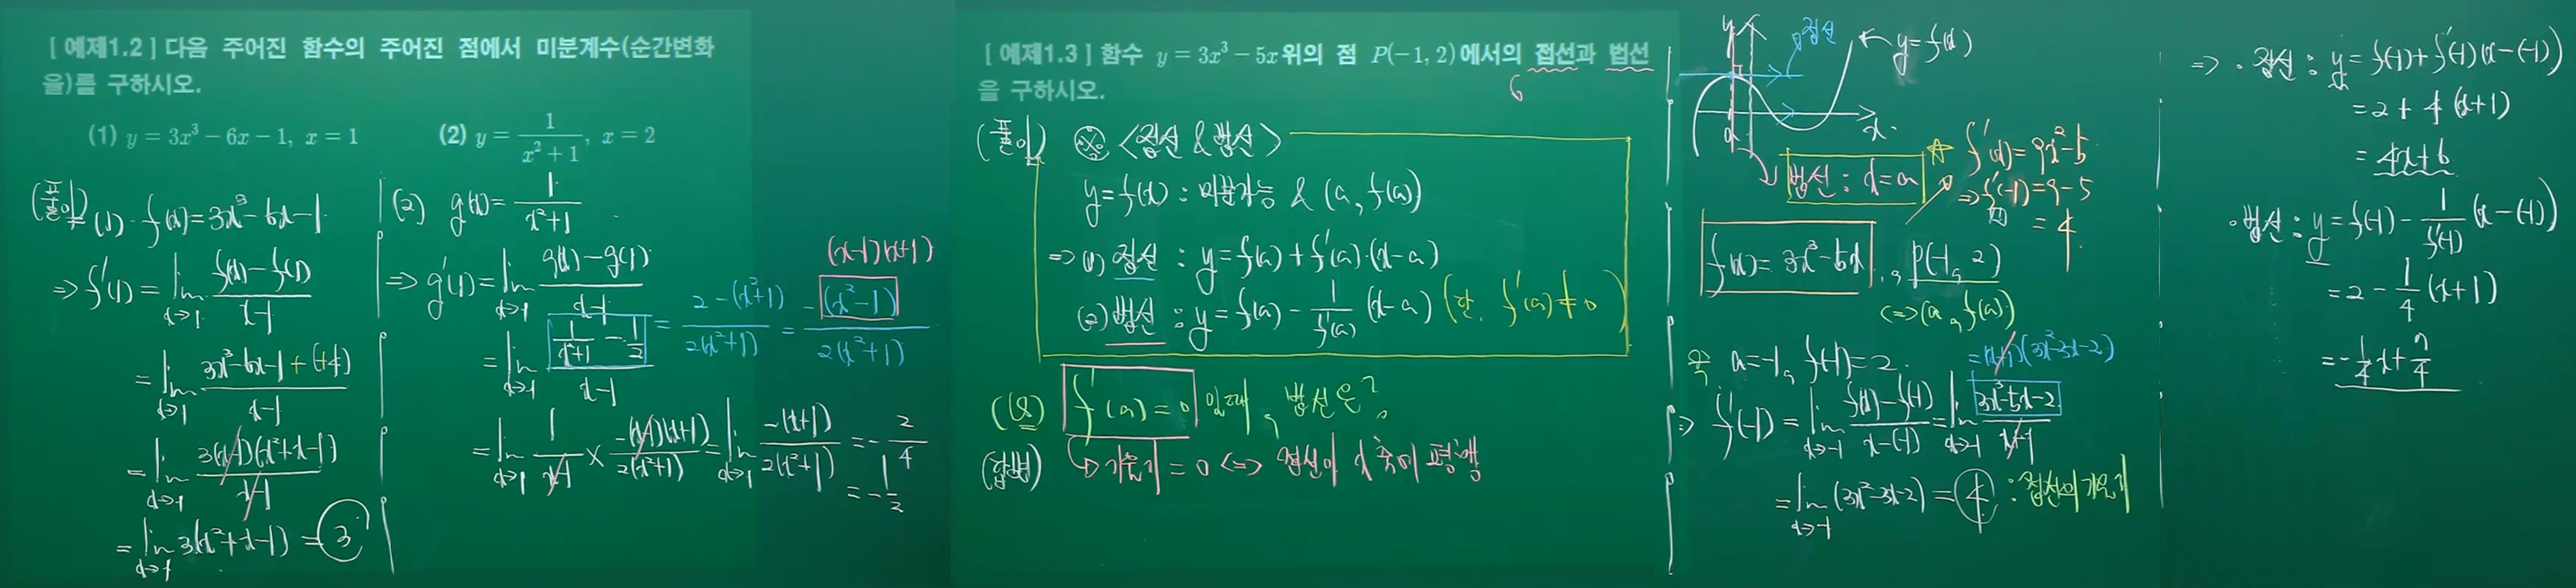 [ 예제1.2 ] 다음 주어진 함수의 주어진 점에서 미분계수(순간변화
율)를 구하시오.
(1) y = 3x³ − 6x − 1, x = 1
(2) y = 1/(x² + 1), x = 2
(풀이) (1) f(x) = 3x³ − 6x − 1
⇒ f'(1) = lim x→1 (f(x) − f(1))/(x − 1)
= lim x→1 (3x³ − 6x − 1 + (+4))/(x − 1)
= lim x→1 3(x−1)(x²+x−1)/(x−1)
= lim x→1 3(x²+x−1) = 3
(2) g(x) = 1/(x²+1)
⇒ g'(1) = lim x→1 (g(x) − g(1))/(x − 1)
= lim x→1 (1/(x²+1) − 1/2)/(x − 1)
= (2 − (x²+1))/(2(x²+1)) = −(x²−1)/(2(x²+1))
(x−1)(x+1)
= lim x→1 1/(x−1) × −(x−1)(x+1)/(2(x²+1)) = lim x→1 −(x+1)/(2(x²+1)) = −2/4
= −1/2
[ 예제1.3 ] 함수 y = 3x³ − 5x 위의 점 P(−1, 2)에서의 접선과 법선
을 구하시오.
(풀이) ※ <접선 & 법선>
y = f(x) : 미분가능 & (a, f(a))
⇒ (1) 접선 : y = f(a) + f'(a)·(x − a)
(2) 법선 : y = f(a) − 1/f'(a) (x − a) (단, f'(a) ≠ 0)
(Q) f'(a) = 0 일 때, 법선은?
(답변) 기울기 = 0 ⇔ 접선이 x축에 평행
y
접선
y = f(x)
a
x
법선 : x = a
f'(x) = 9x² − 5
⇒ f'(−1) = 9 − 5
= 4
f(x) = 3x³ − 5x, P(−1, 2)
⇔ (a, f(a))
a = −1, f(−1) = 2
= (x+1)(3x²−3x−2)
⇒ f'(−1) = lim x→−1 (f(x) − f(−1))/(x − (−1)) = lim x→−1 (3x³−5x−2)/(x+1)
= lim x→−1 (3x²−3x−2) = 4 : 접선의 기울기
⇒ · 접선 : y = f(−1) + f'(−1)(x − (−1))
= 2 + 4(x+1)
= 4x + 6
· 법선 : y = f(−1) − 1/f'(−1) (x − (−1))
= 2 − 1/4 (x+1)
= −1/4 x + 7/4